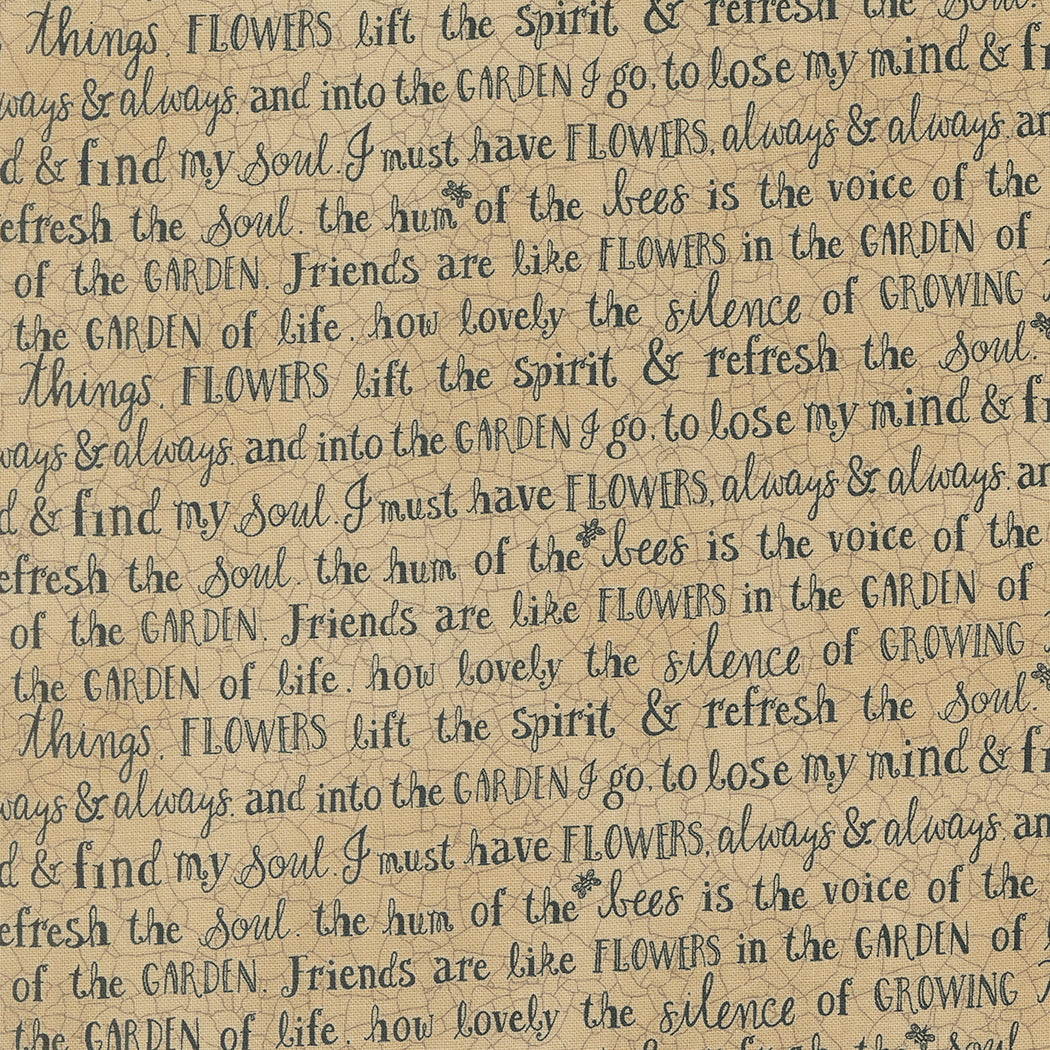 things. FLOWERS lift the spirit & refresh the soul.
ways & always. and into the GARDEN I go, to lose my mind & fi
d & find my soul. I must have FLOWERS, always & always. an
efresh the soul. the hum of the bees is the voice of the
of the GARDEN. Friends are like FLOWERS in the GARDEN of
the GARDEN of life. how lovely the silence of GROWING
things. FLOWERS lift the spirit & refresh the soul.
ways & always. and into the GARDEN I go, to lose my mind & fi
d & find my soul. I must have FLOWERS, always & always. an
efresh the soul. the hum of the bees is the voice of the
of the GARDEN. Friends are like FLOWERS in the GARDEN of
the GARDEN of life. how lovely the silence of GROWING
things. FLOWERS lift the spirit & refresh the soul.
ways & always. and into the GARDEN I go, to lose my mind & fi
d & find my soul. I must have FLOWERS, always & always. an
efresh the soul. the hum of the bees is the voice of the
of the GARDEN. Friends are like FLOWERS in the GARDEN of
the GARDEN of life. how lovely the silence of GROWING
the soul